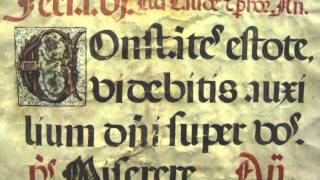 Feria. v. Ad Laude
COnſtātes eſtote,
videbitis auxi
lium dñi ſuper vos.
ps. Miſerere. Añ.